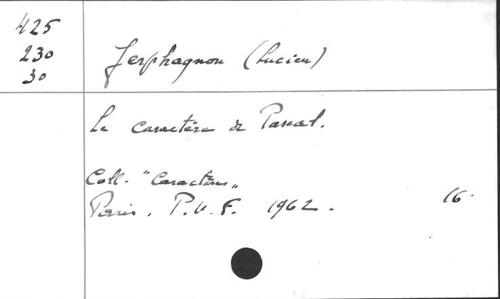 425
230
30
Jerphagnon (Lucien)
Le caractère de Pascal.
Coll. "Caractères"
Paris. P.U.F. 1962. 16